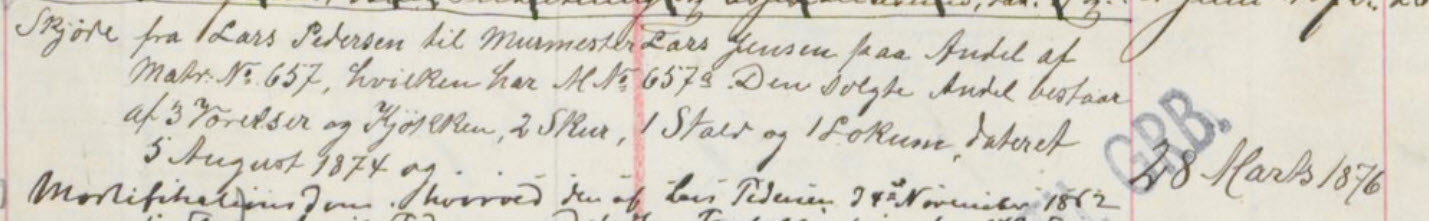 Skjøde fra Lars Pedersen til Murmester Lars Jensen paa Andel af
Matr: No 657, hvilken har M No 657a. Den solgte Andel bestaar
af 3 Værelser og Kjøkken, 2 Skur, 1 Stald og 1 Lokum, dateret
5 August 1874 og
28 Marts 1876
GRB.
Mortifikationsdom hvorved den af Lars Pedersen d 4de November 1862